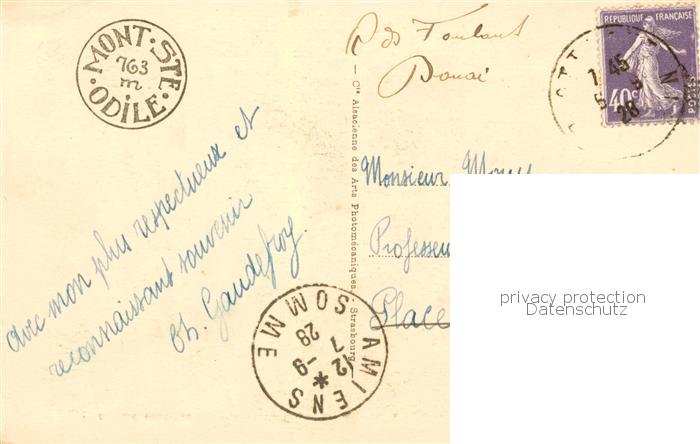 MONT · STE · ODILE ·
763
m
avec mon plus respectueux et
reconnaissant souvenir
Ch. Gaudefroy
AMIENS
SOMME
12 * -9
7
28
Cie Alsacienne des Arts Photomécaniques, Strasbourg
Douai
REPUBLIQUE FRANÇAISE
40c
POSTES
28
Monsieur
Professeu
Place
privacy protection
Datenschutz